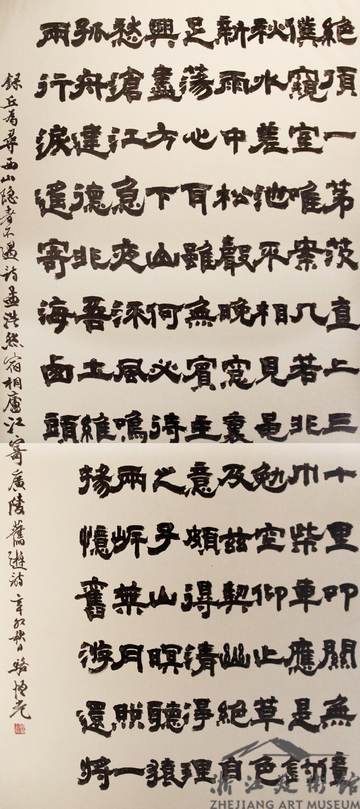 絕頂一茅茨直上三十里叩關無僮
僕窺室唯案几若非巾柴車應是釣
秋水差池不相見黽勉空仰止草色
新雨中松聲晚窗裏及茲契幽絕自
足蕩心耳雖無賓主意頗得清淨理
興盡方下山何必待之子山暝聽猿
愁滄江急夜流風鳴兩岸葉月照一
孤舟建德非吾土維揚憶舊游還將
兩行淚遙寄海西頭
錄丘為尋西山隱者不遇詩孟浩然宿桐廬江寄廣陵舊遊詩辛卯秋日駱恒光
浙江美術館
ZHEJIANG ART MUSEUM